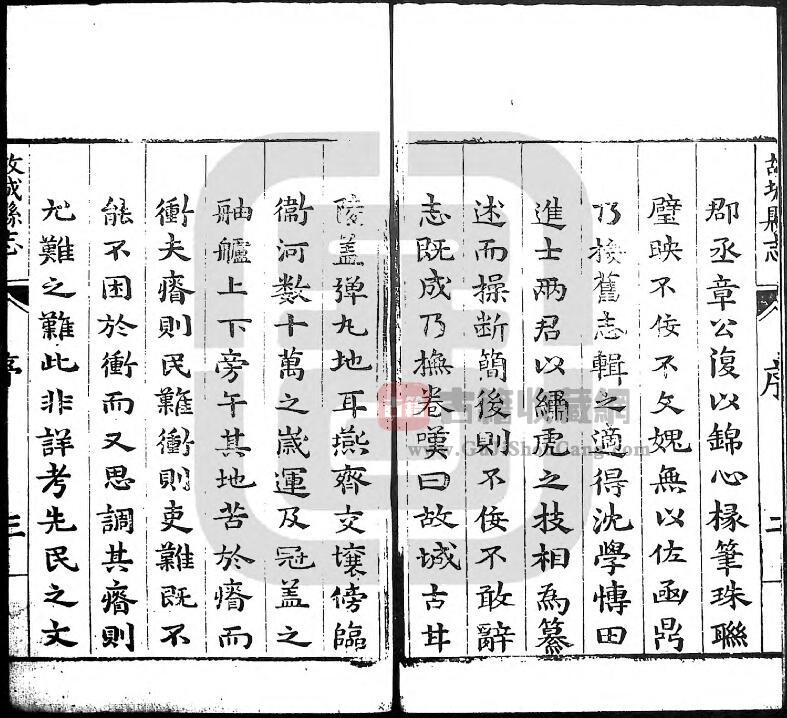 故城縣志
序
二
郡丞章公復以錦心椽筆珠聯
璧映不佞不文媿無以佐函鼎
乃按舊志輯之適得沈學愽田
進士兩君以繡虎之技相為纂
述而操断簡後則不佞不敢辭
志既成乃撫卷嘆曰故城古甘
陵盖弹丸地耳燕齊交壤傍臨
衞河数十萬之嵗運及冠盖之
舳艫上下旁午其地苦於瘠而
衝夫瘠則民難衝則吏難既不
能不困於衝而又思調其瘠則
尤難之難此非詳考先民之文
故城縣志
序
三
古籍
古籍收藏網
www.GuJiShouCang.com